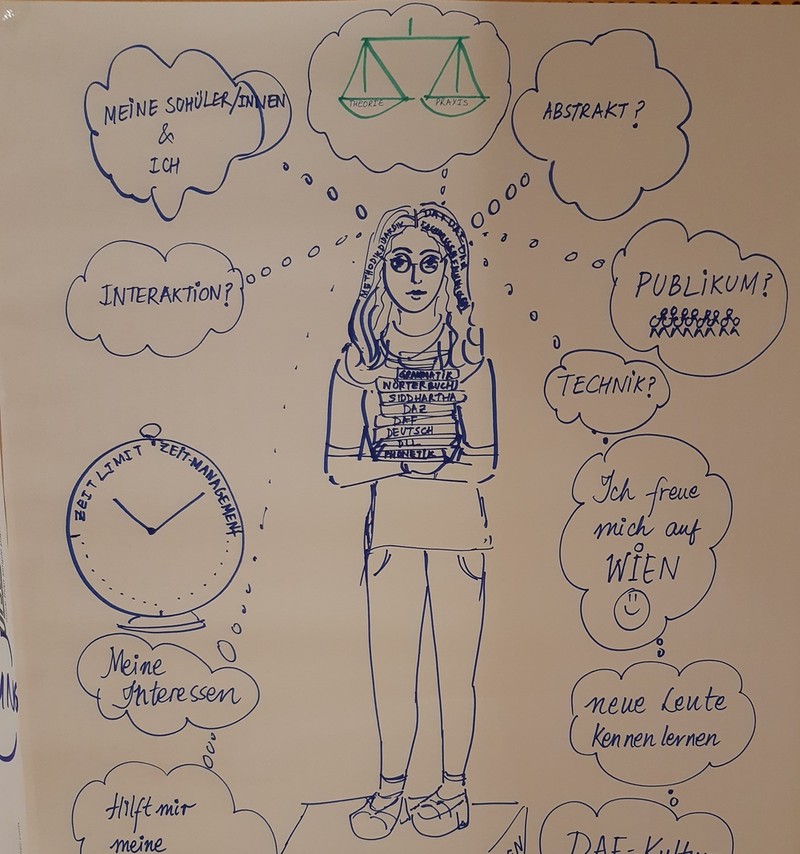 MEINE SCHÜLER/INNEN
&
ICH
THEORIE
PRAXIS
ABSTRAKT?
INTERAKTION?
PUBLIKUM?
METHODIK DIDAKTIK
TECHNIK?
GRAMMATIK
WÖRTERBUCH
SIDDHARTHA
DAZ
DAF
DEUTSCH
DLL
PHONETIK
ZEITLIMIT ZEIT-MANAGEMENT
Ich freue
mich auf
WIEN
Meine
Interessen
neue Leute
kennen lernen
Hilft mir
meine
DAF-Kultur